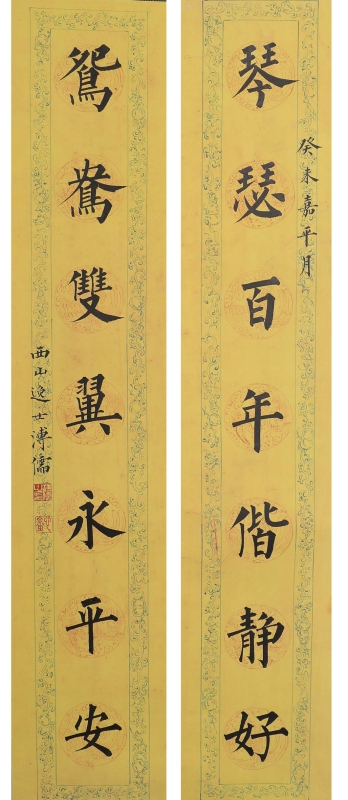 癸未嘉平月
琴瑟百年偕静好
鴛鴦雙翼永平安
西山逸士溥儒